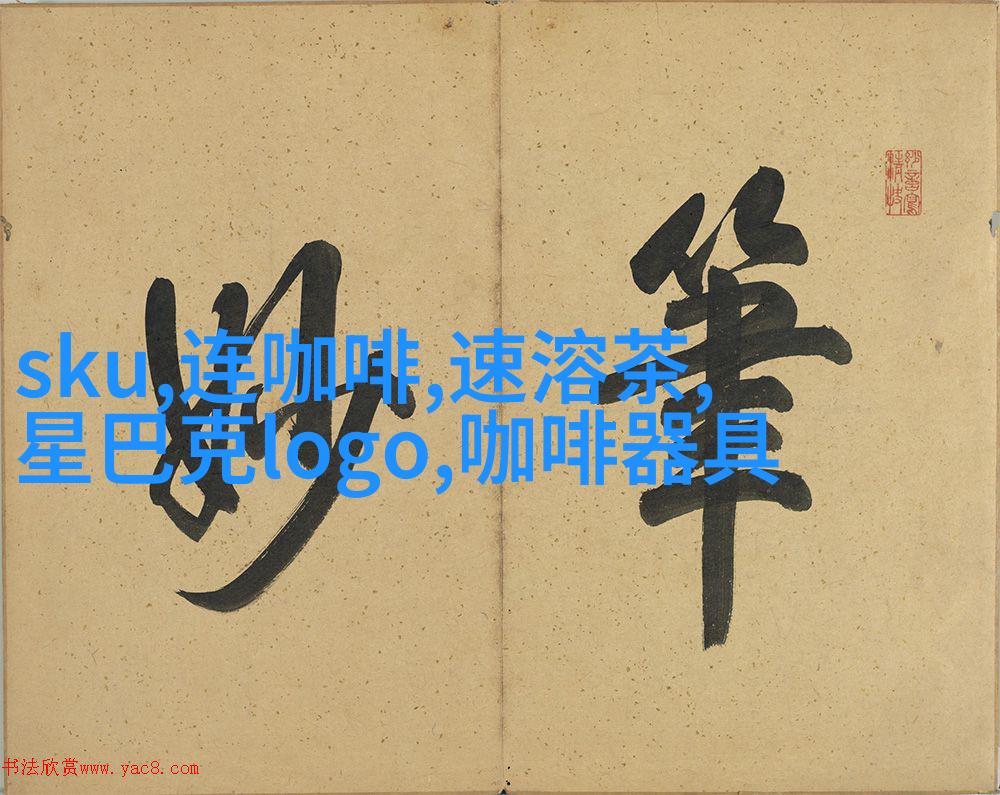 筆
妙
sku,连咖啡,速溶茶,
星巴克logo,咖啡器具
书法欣赏www.yac8.com